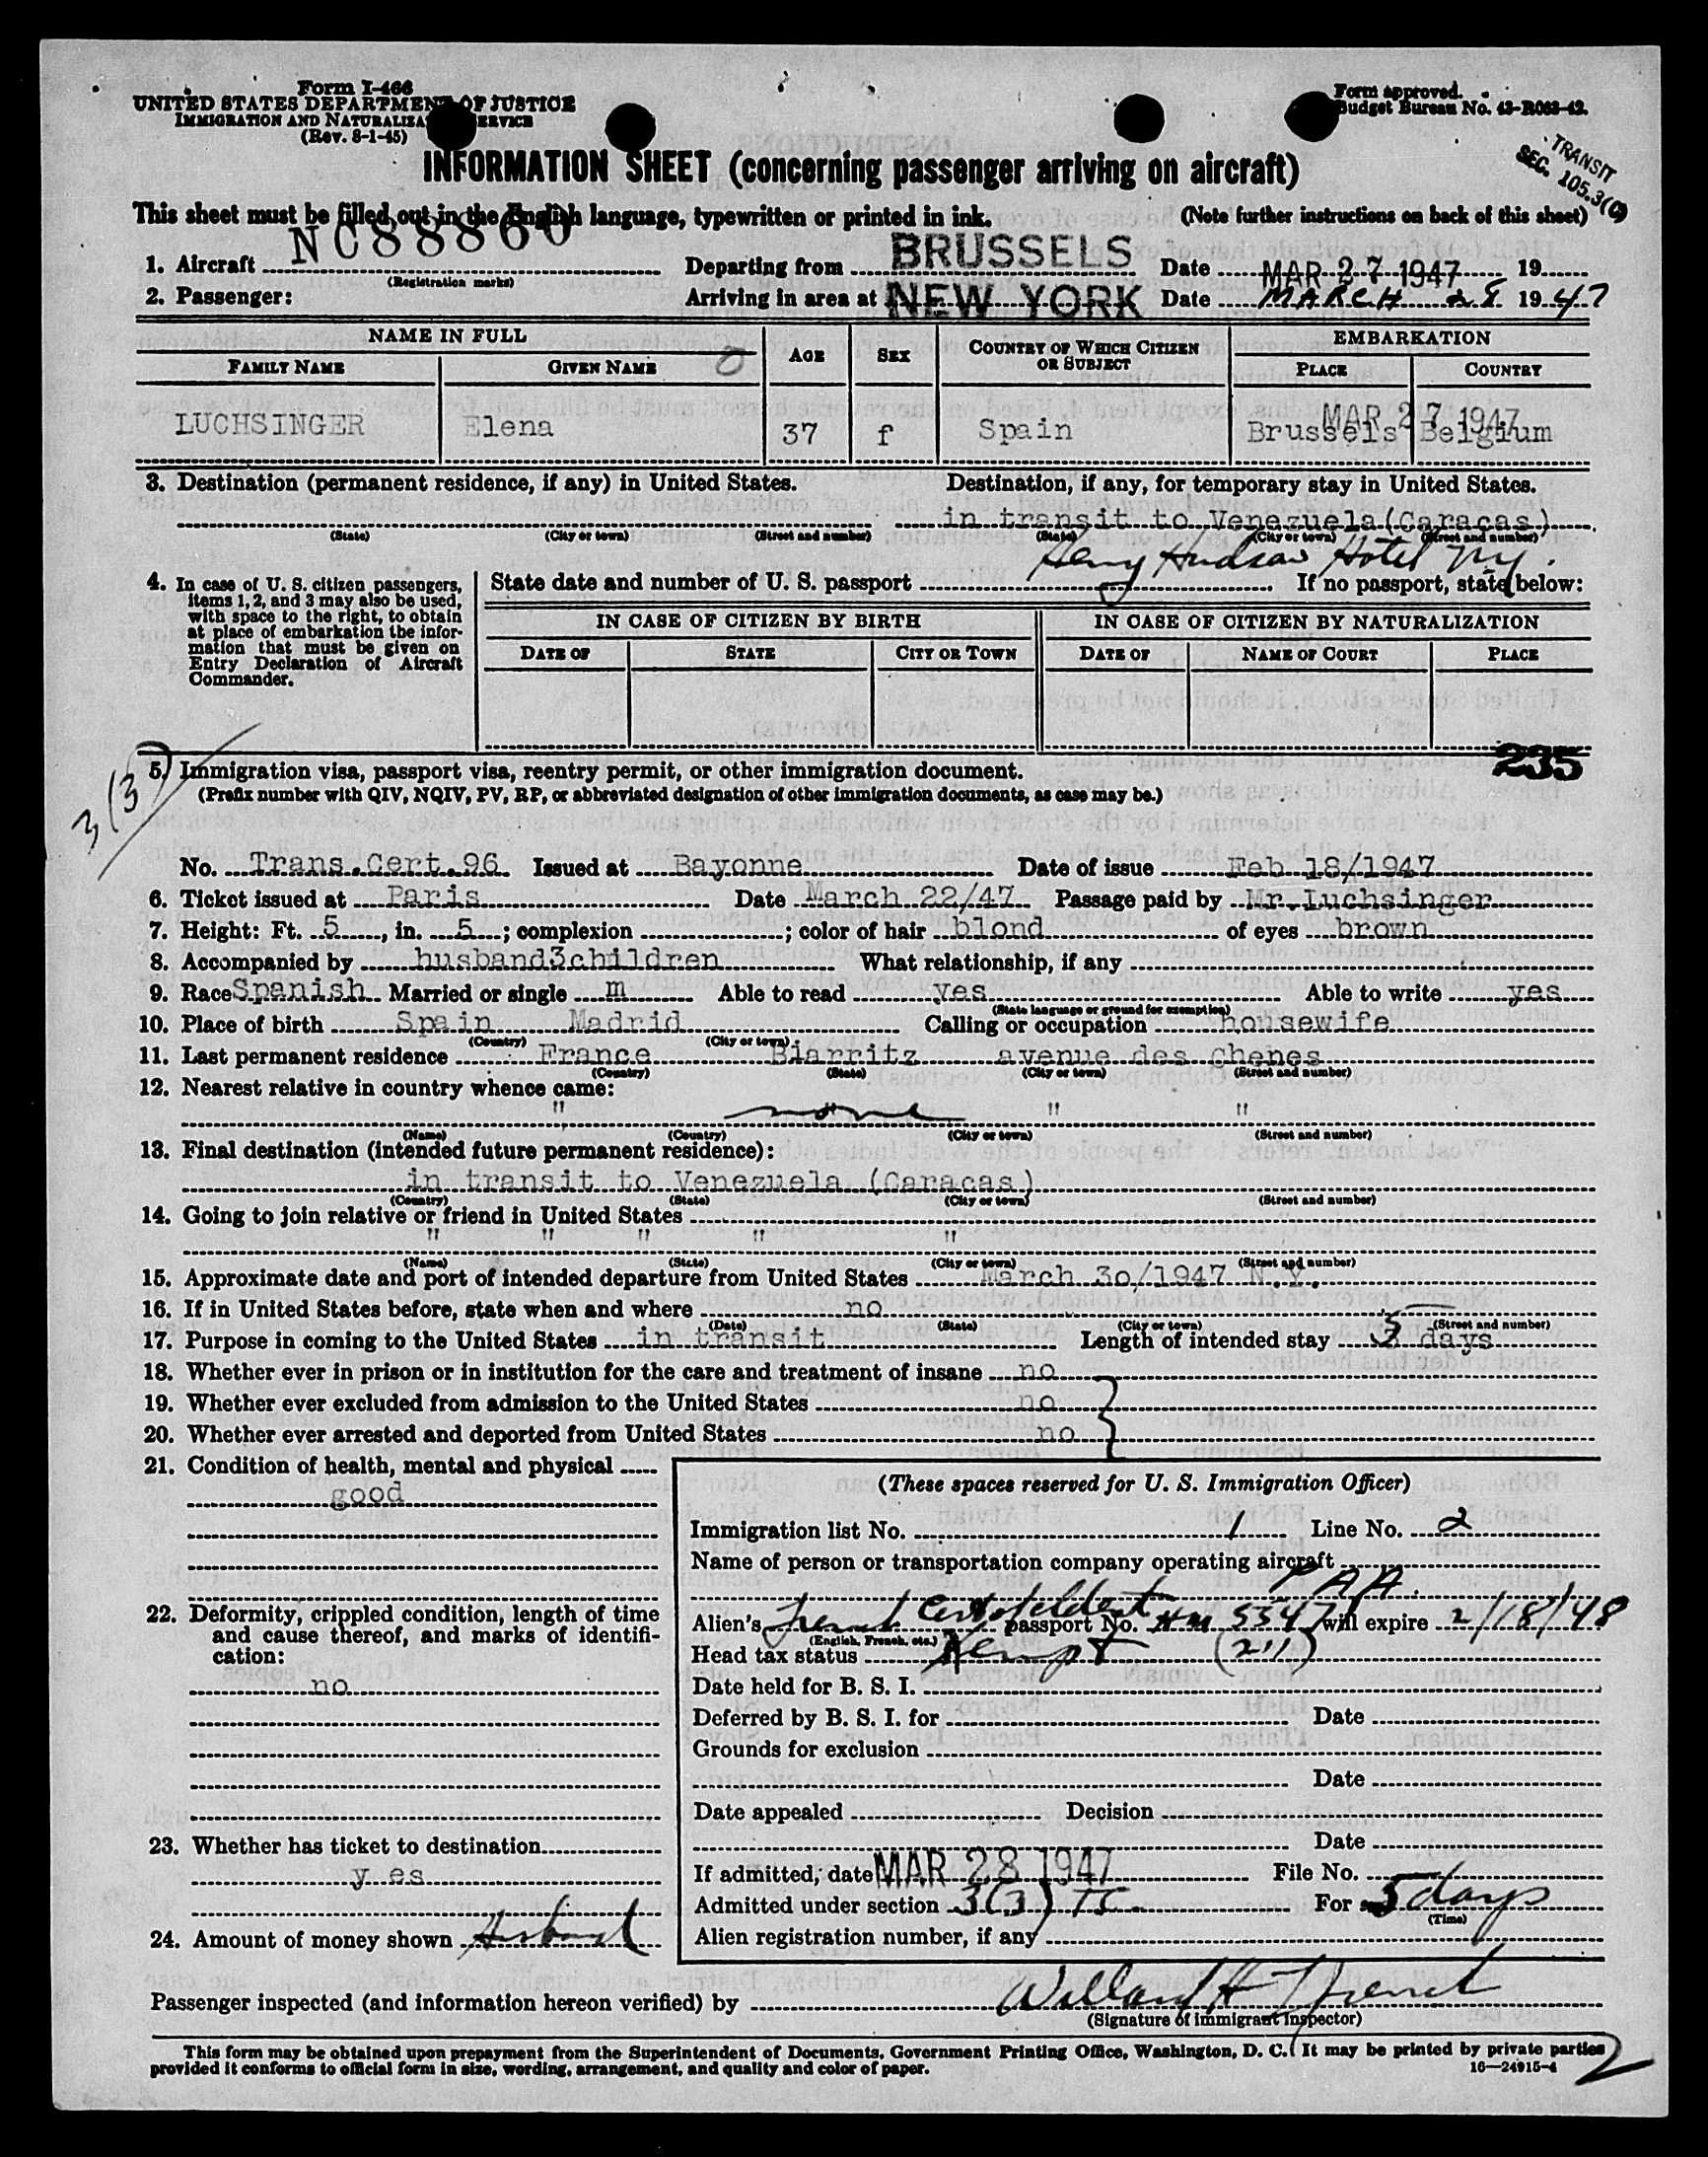 Form I-466
UNITED STATES DEPARTMENT OF JUSTICE
IMMIGRATION AND NATURALIZA SERVICE
(Rev. 8-1-45)
Form approved.
Budget Bureau No. 43-R063-42.
TRANSIT
SEC. 105.3(C)
INFORMATION SHEET (concerning passenger arriving on aircraft)
This sheet must be filled out in the English language, typewritten or printed in ink. (Note further instructions on back of this sheet)
1. Aircraft NC88860 Departing from BRUSSELS Date MAR 27 1947 19
(Registration marks)
2. Passenger: Arriving in area at NEW YORK Date MARCH 28 1947
NAME IN FULL AGE SEX COUNTRY OF WHICH CITIZEN OR SUBJECT EMBARKATION
FAMILY NAME GIVEN NAME PLACE COUNTRY
MAR 27 1947
LUCHSINGER Elena 37 f Spain Brussels Belgium
3. Destination (permanent residence, if any) in United States. Destination, if any, for temporary stay in United States.
in transit to Venezuela(Caracas)
(State) (City or town) (Street and number) (State) (City or town) (Street and number)
Henry Hudson Hotel NY.
4. In case of U. S. citizen passengers, items 1, 2, and 3 may also be used, with space to the right, to obtain at place of embarkation the information that must be given on Entry Declaration of Aircraft Commander.
State date and number of U. S. passport If no passport, state below:
IN CASE OF CITIZEN BY BIRTH IN CASE OF CITIZEN BY NATURALIZATION
DATE OF STATE CITY OR TOWN DATE OF NAME OF COURT PLACE
235
3(3)
5. Immigration visa, passport visa, reentry permit, or other immigration document.
(Prefix number with QIV, NQIV, PV, RP, or abbreviated designation of other immigration documents, as case may be.)
No. Trans.Cert.96 Issued at Bayonne Date of issue Feb 18/1947
6. Ticket issued at Paris Date March 22/47 Passage paid by Mr.Luchsinger
7. Height: Ft. 5, in. 5; complexion ; color of hair blond of eyes brown
8. Accompanied by husband3children What relationship, if any
9. Race Spanish Married or single m Able to read yes Able to write yes
(State language or ground for exemption)
10. Place of birth Spain Madrid Calling or occupation housewife
(Country) (City or town)
11. Last permanent residence France Biarritz avenue des chenes
(Country) (State) (City or town) (Street and number)
12. Nearest relative in country whence came:
" none " "
(Name) (Country) (City or town) (Street and number)
13. Final destination (intended future permanent residence):
in transit to Venezuela (Caracas)
(Country) (State) (City or town) (Street and number)
14. Going to join relative or friend in United States
" " " " "
(Name) (State) (City or town) (Street and number)
15. Approximate date and port of intended departure from United States March 30/1947 N.Y.
16. If in United States before, state when and where no
(Date) (State) (City or town) (Street and number)
17. Purpose in coming to the United States in transit Length of intended stay 5 days
18. Whether ever in prison or in institution for the care and treatment of insane no
19. Whether ever excluded from admission to the United States no
20. Whether ever arrested and deported from United States no
21. Condition of health, mental and physical
good
22. Deformity, crippled condition, length of time and cause thereof, and marks of identification:
no
23. Whether has ticket to destination
y es
24. Amount of money shown Husband
(These spaces reserved for U. S. Immigration Officer)
Immigration list No. 1 Line No. 2
Name of person or transportation company operating aircraft
PAA.
Alien's French Cert of Ident passport No. 5347 will expire 2/18/48
(English, French, etc.)
Head tax status Xempt (211)
Date held for B. S. I.
Deferred by B. S. I. for Date
Grounds for exclusion
Date
Date appealed Decision
Date
If admitted, date MAR 28 1947 File No.
Admitted under section 3(3) For 5 days
(Time)
Alien registration number, if any
Passenger inspected (and information hereon verified) by Willard H
(Signature of immigrant inspector)
This form may be obtained upon prepayment from the Superintendent of Documents, Government Printing Office, Washington, D. C. It may be printed by private parties
provided it conforms to official form in size, wording, arrangement, and quality and color of paper.
16—24915-4
2